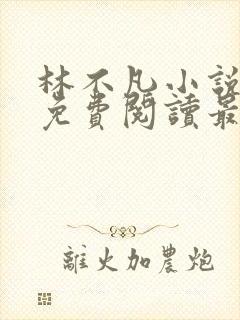 林不凡小說
免費閱讀最
離火加農炮